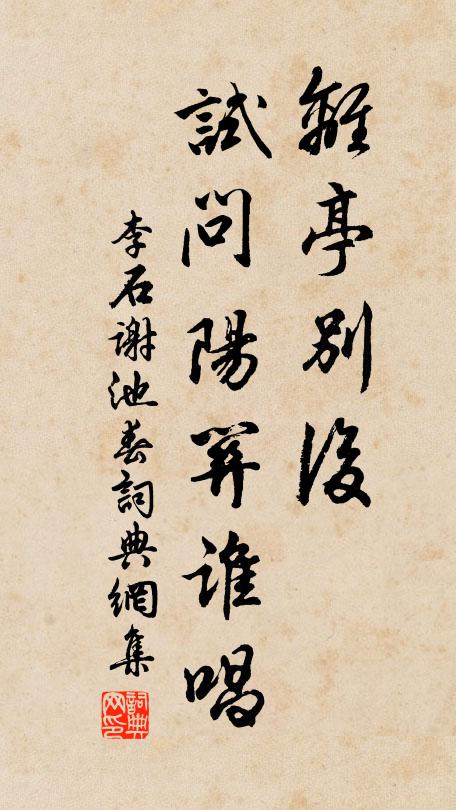 離亭別後
試問陽關誰唱
李石謝池春詞典網集
詞典
网印